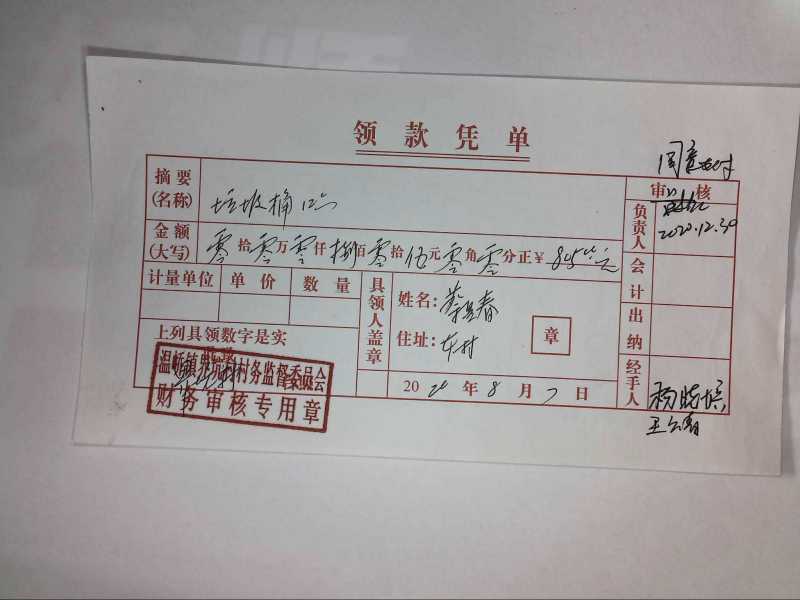 领款凭单
同意支付
摘要(名称) 垃圾桶12只
审核
金额(大写) 零拾零万零仟捌百零拾伍元零角零分正¥805.00元
负责人 2020.12.30
计量单位 单价 数量
会计
具领人盖章
姓名: 春
章
住址: 本村
出纳
上列具领数字是实
2020年8月7日
经手人 杨晓
村务监督委员会
财务审核专用章